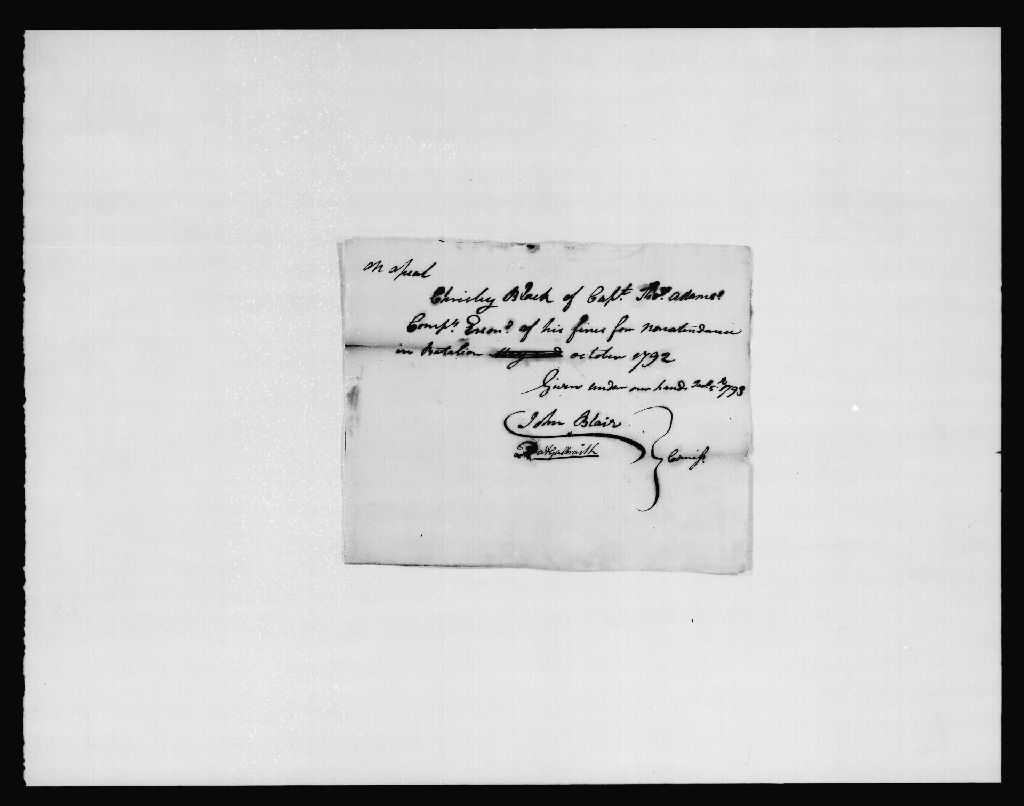 On apeal
Christy Black of Capt. Thos. Adams's
Compy. Exond. of his fines for nonatendance
in Batalion october 1792
Given under our hands 1793
John Blair
Pat Galbraith
Comisr.